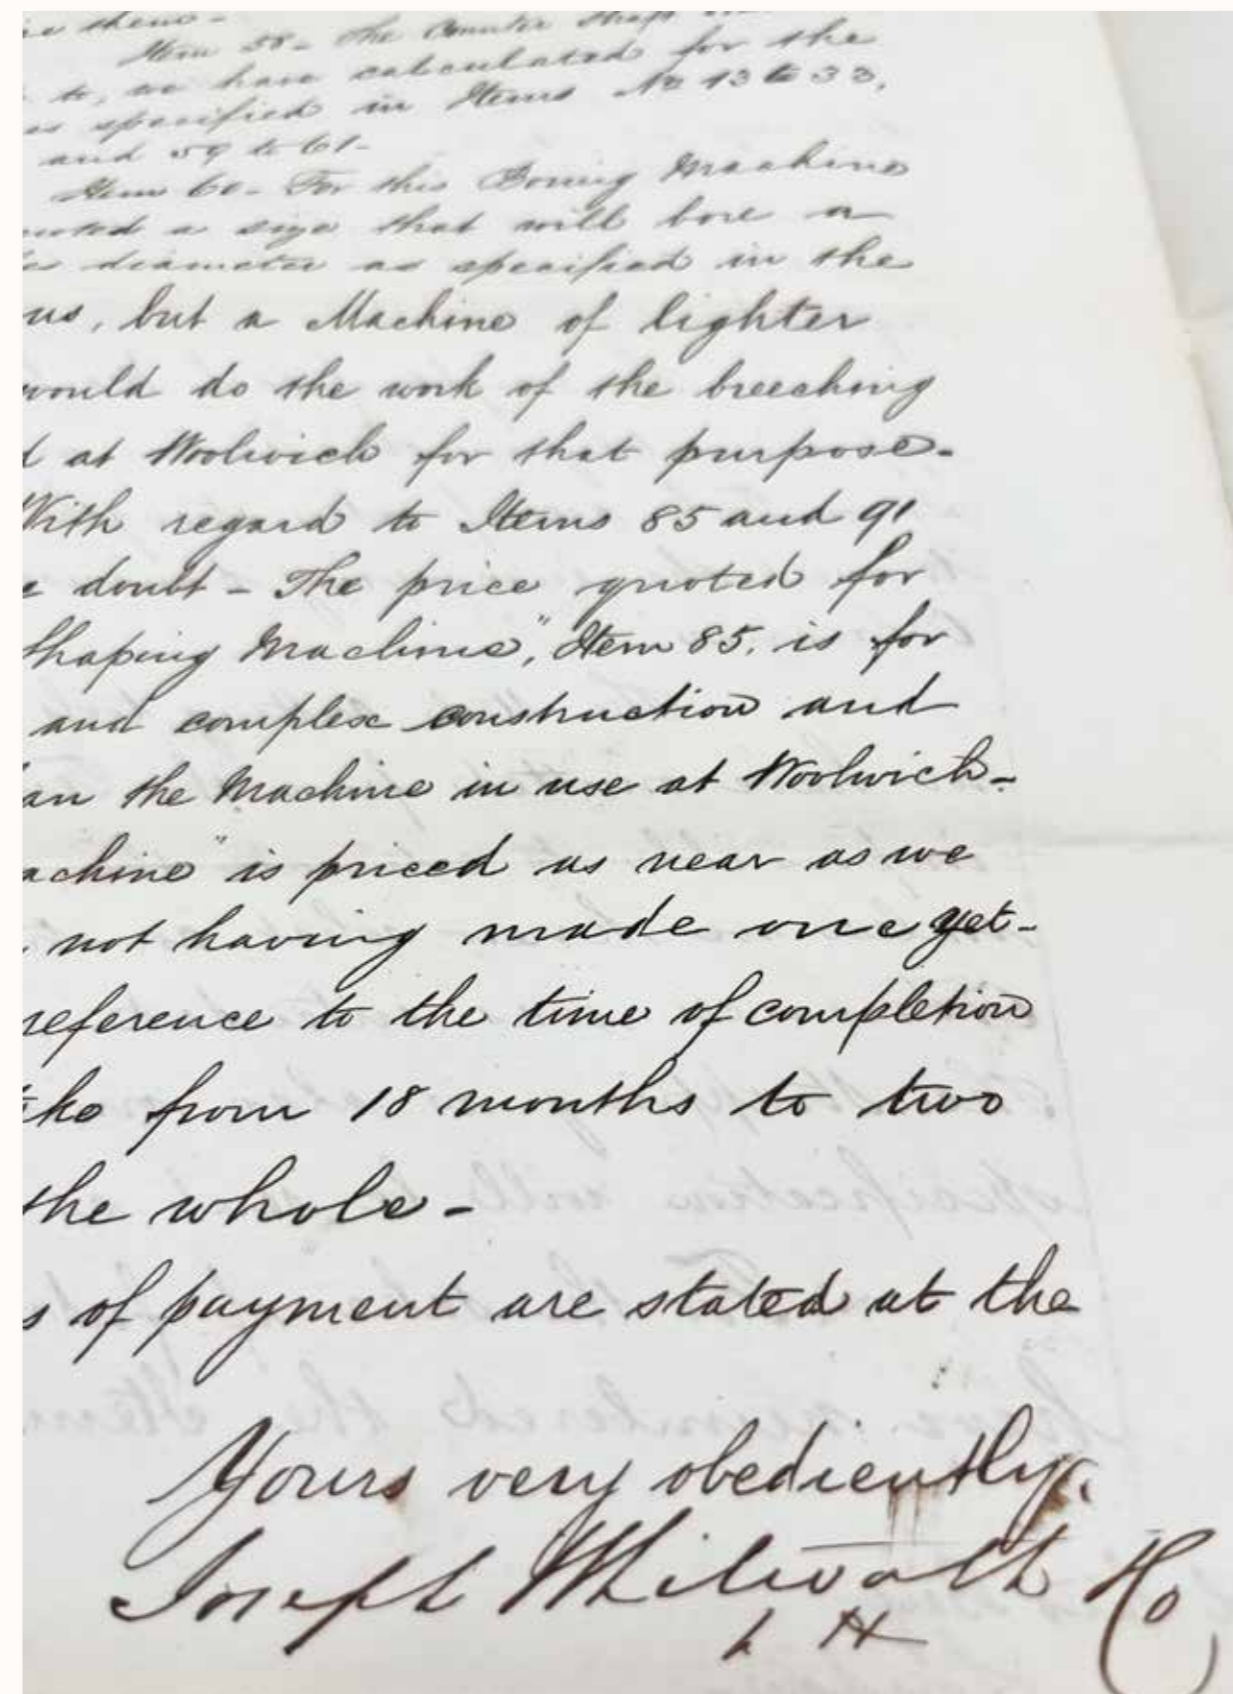 them -
Item 58 - The Counter Shafts
to, we have calculated for the
as specified in Items No 13 to 33,
and 59 to 61 -
Item 60 - For this Boring Machine
a size that will bore a
diameter as specified in the
us, but a Machine of lighter
would do the work of the breeching
at Woolwich for that purpose -
With regard to Items 85 and 91
doubt - The price quoted for
Shaping Machine", Item 85, is for
and complex construction and
an the Machine in use at Woolwich -
achine" is priced as near as we
not having made one yet -
reference to the time of completion
ke from 18 months to two
the whole -
s of payment are stated at the
Yours very obediently,
Joseph Whitworth & Co